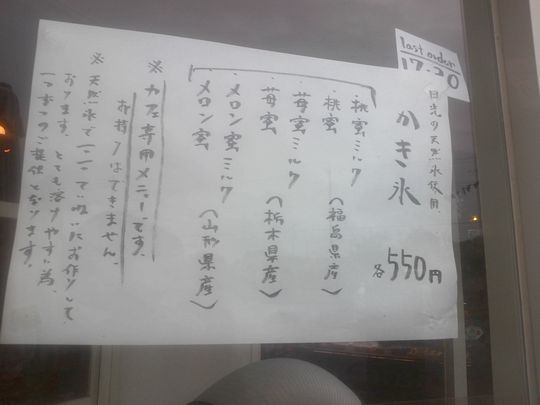 last order
17:30
日光の天然氷使用
かき氷
各550円
・桃蜜ミルク
・桃蜜
(福島県産)
・苺蜜ミルク
・苺蜜
(栃木県産)
・メロン蜜ミルク
・メロン蜜
(山形県産)
※カフェ専用メニューです。
お持ちはできません。
※天然氷で一つ一つていねいにお作りして
おります。とても溶けやすい為、
一つずつのご提供となります。